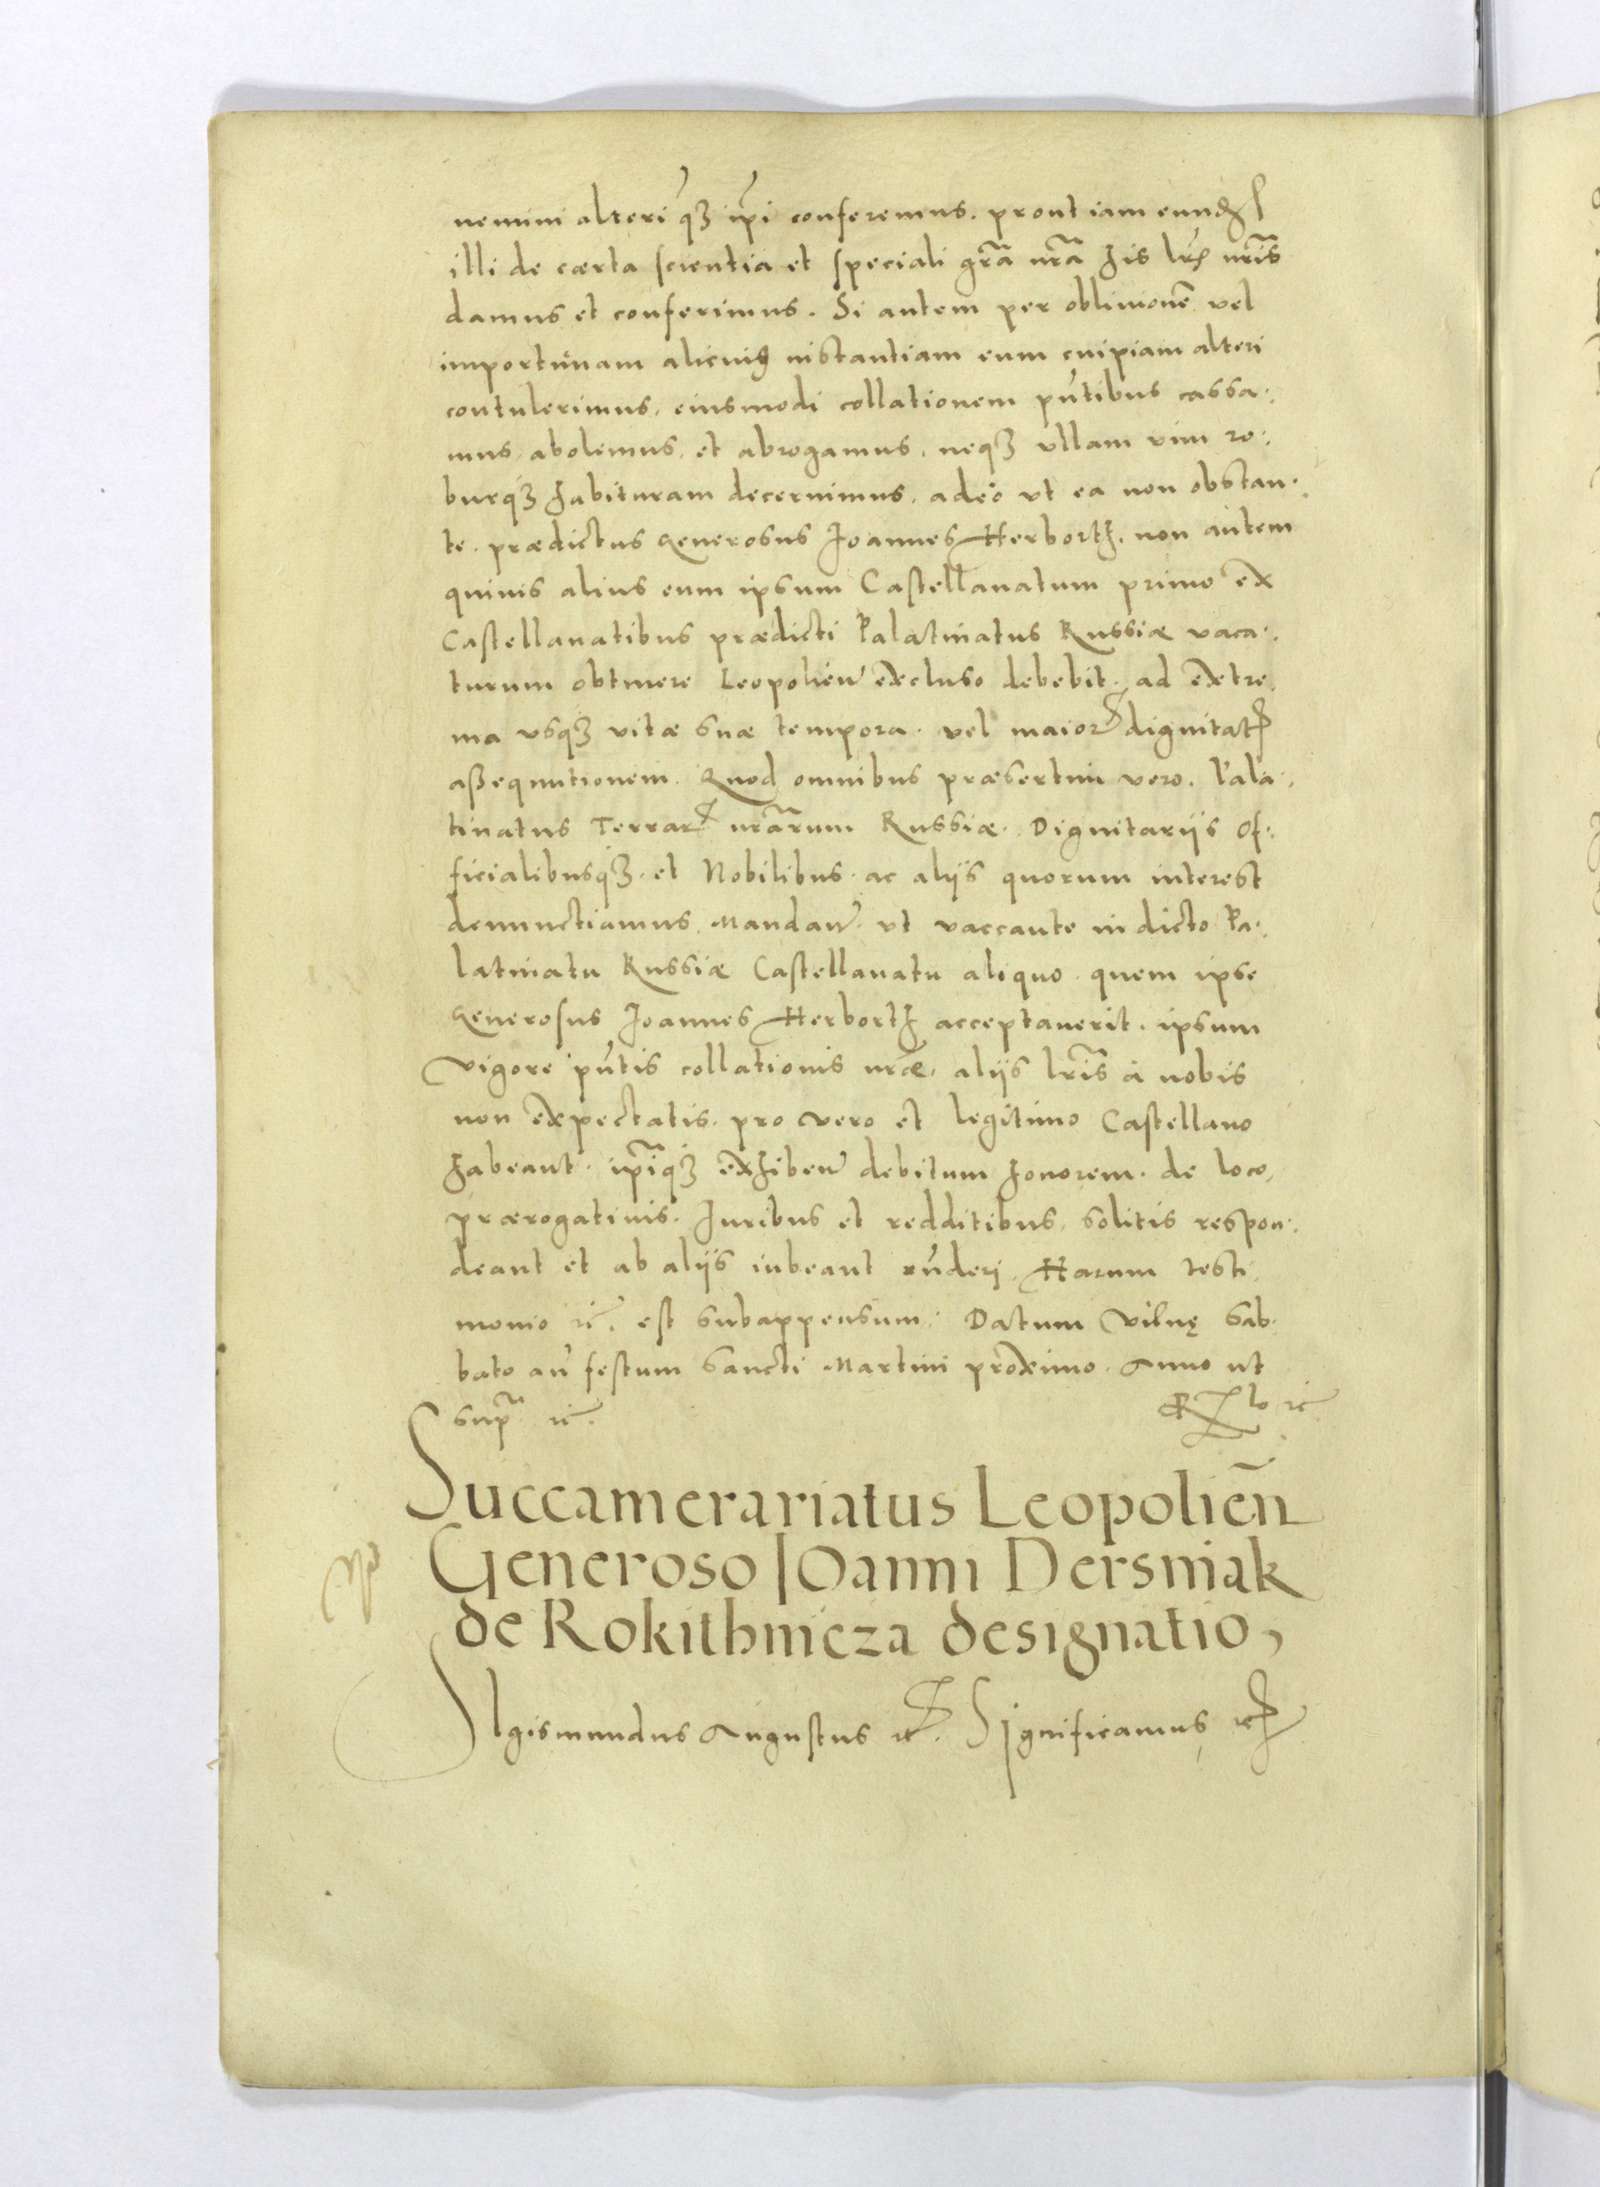 nemini alteri q̃ꝫ ip̃i conferemus. prout iam eund
illi de cærta scientia et speciali gr̃a nr̃a his lr̃is nr̃is
damus et conferimus. Si autem per oblivionẽ vel
importunam alicuiꝰ instantiam eum cuipiam alteri
contulerimus, eiusmodi collationem pñtibus cassa·
mus, abolemus, et abrogamus, neqꝫ ullam vim ro·
burqꝫ habituram decernimus, adeo ut ea non obstan·
te. prædictus Generosus Joannes Herborth, non autem
quivis alius eum ipsum Castellanatum primo ex
Castellanatibus prædicti Palatinatus Russiæ vaca·
turum obtinere Leopolieñ excluso debebit. ad extre
ma usqꝫ vitæ suæ tempora. vel maior dignitat
aßequutionem. Quod omnibus præsertim vero. Pala·
tinatus Terrar nr̃arum Russiæ. Dignitariis Of·
ficialibusqꝫ. et Nobilibus. ac aliis quorum interest
denunctiamus Mandañ. ut vaccante in dicto Pa·
latinatu Russiæ Castellanatu aliquo. quem ipse
Generosus Joannes Herborth acceptaverit. ipsum
vigore pñtis collationis nr̃æ, aliis lr̃is à nobis
non expectatis. pro vero et legitimo Castellano
habeant. ip̃iqꝫ exhibeñ debitum honorem. de loco,
prærogativis. Juribus et redditibus, solitis respon·
deant et ab aliis iubeant rñderi. Harum testi
monio ꝛc̃. est subappensum. Datum Vilnę Sab·
bato añ festum Sancti Martini proximo. Anno ut
sup̃ ꝛc̃.
Succamerariatus Leopolieñ
Generoso Joanni Dersniak
de Rokithnicza designatio,
Sigismundus Augustus ꝛc. Significamus ꝛc